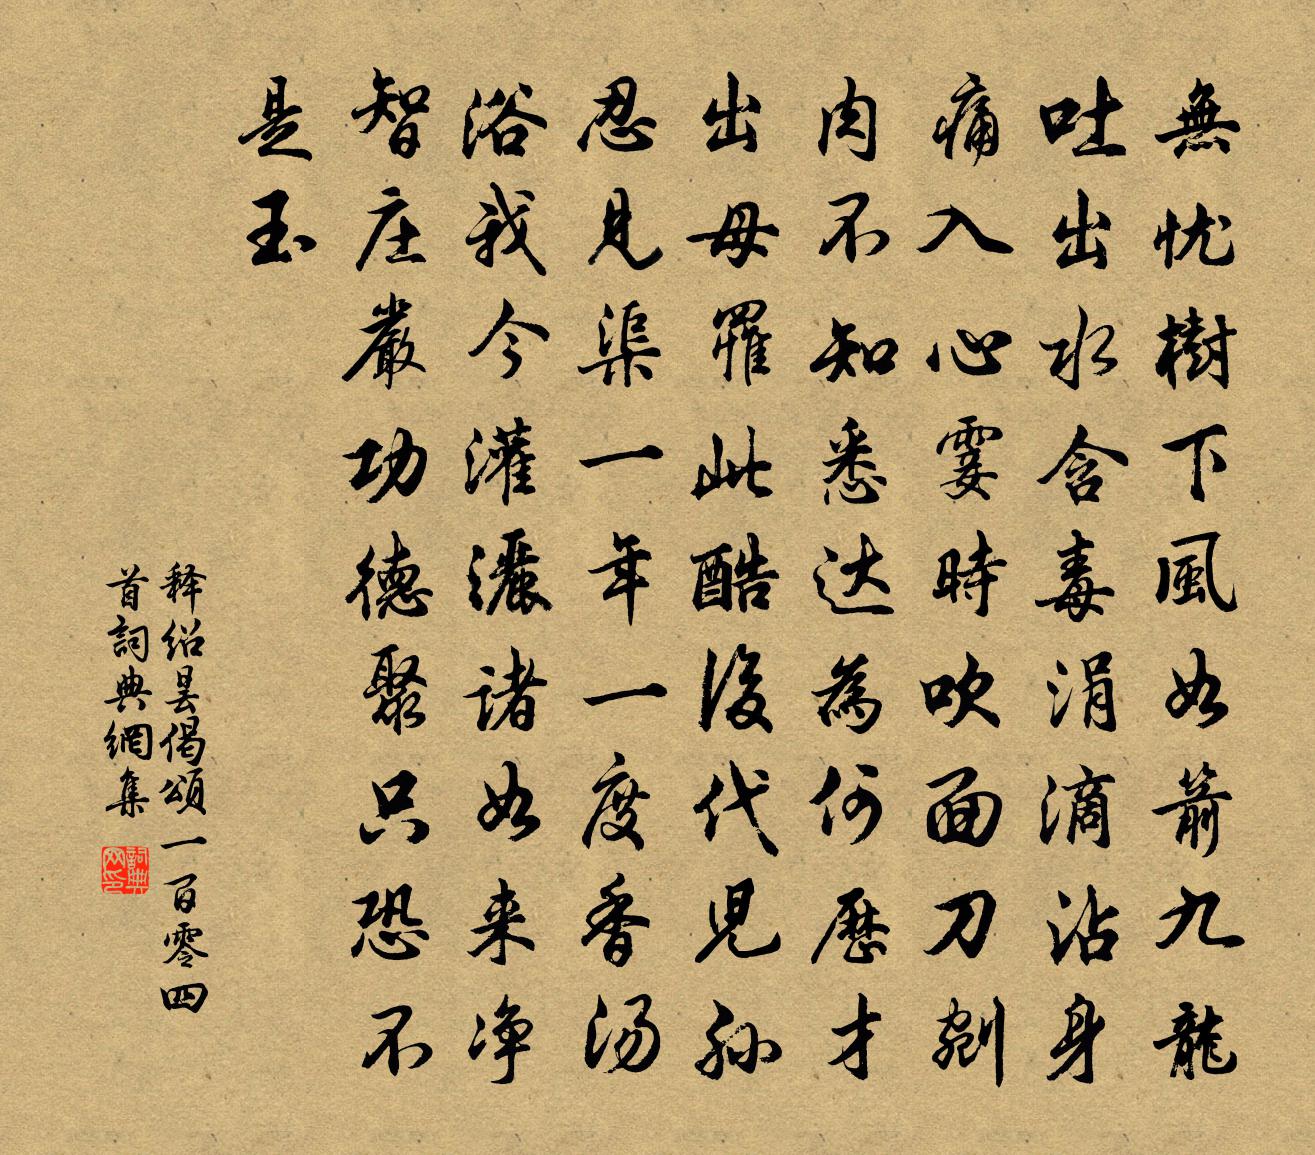 無忧樹下風如箭九龍
吐出水含毒涓滴沾身
痛入心霎時吹面刀剜
肉不知悉达為何歷才
出母罹此酷後代兒孫
忍見渠一年一度香汤
浴我今灌灑諸如来净
智庄嚴功德聚只恐不
是玉
释绍昙偈頌一百零四
首詞典網集
詞典网印